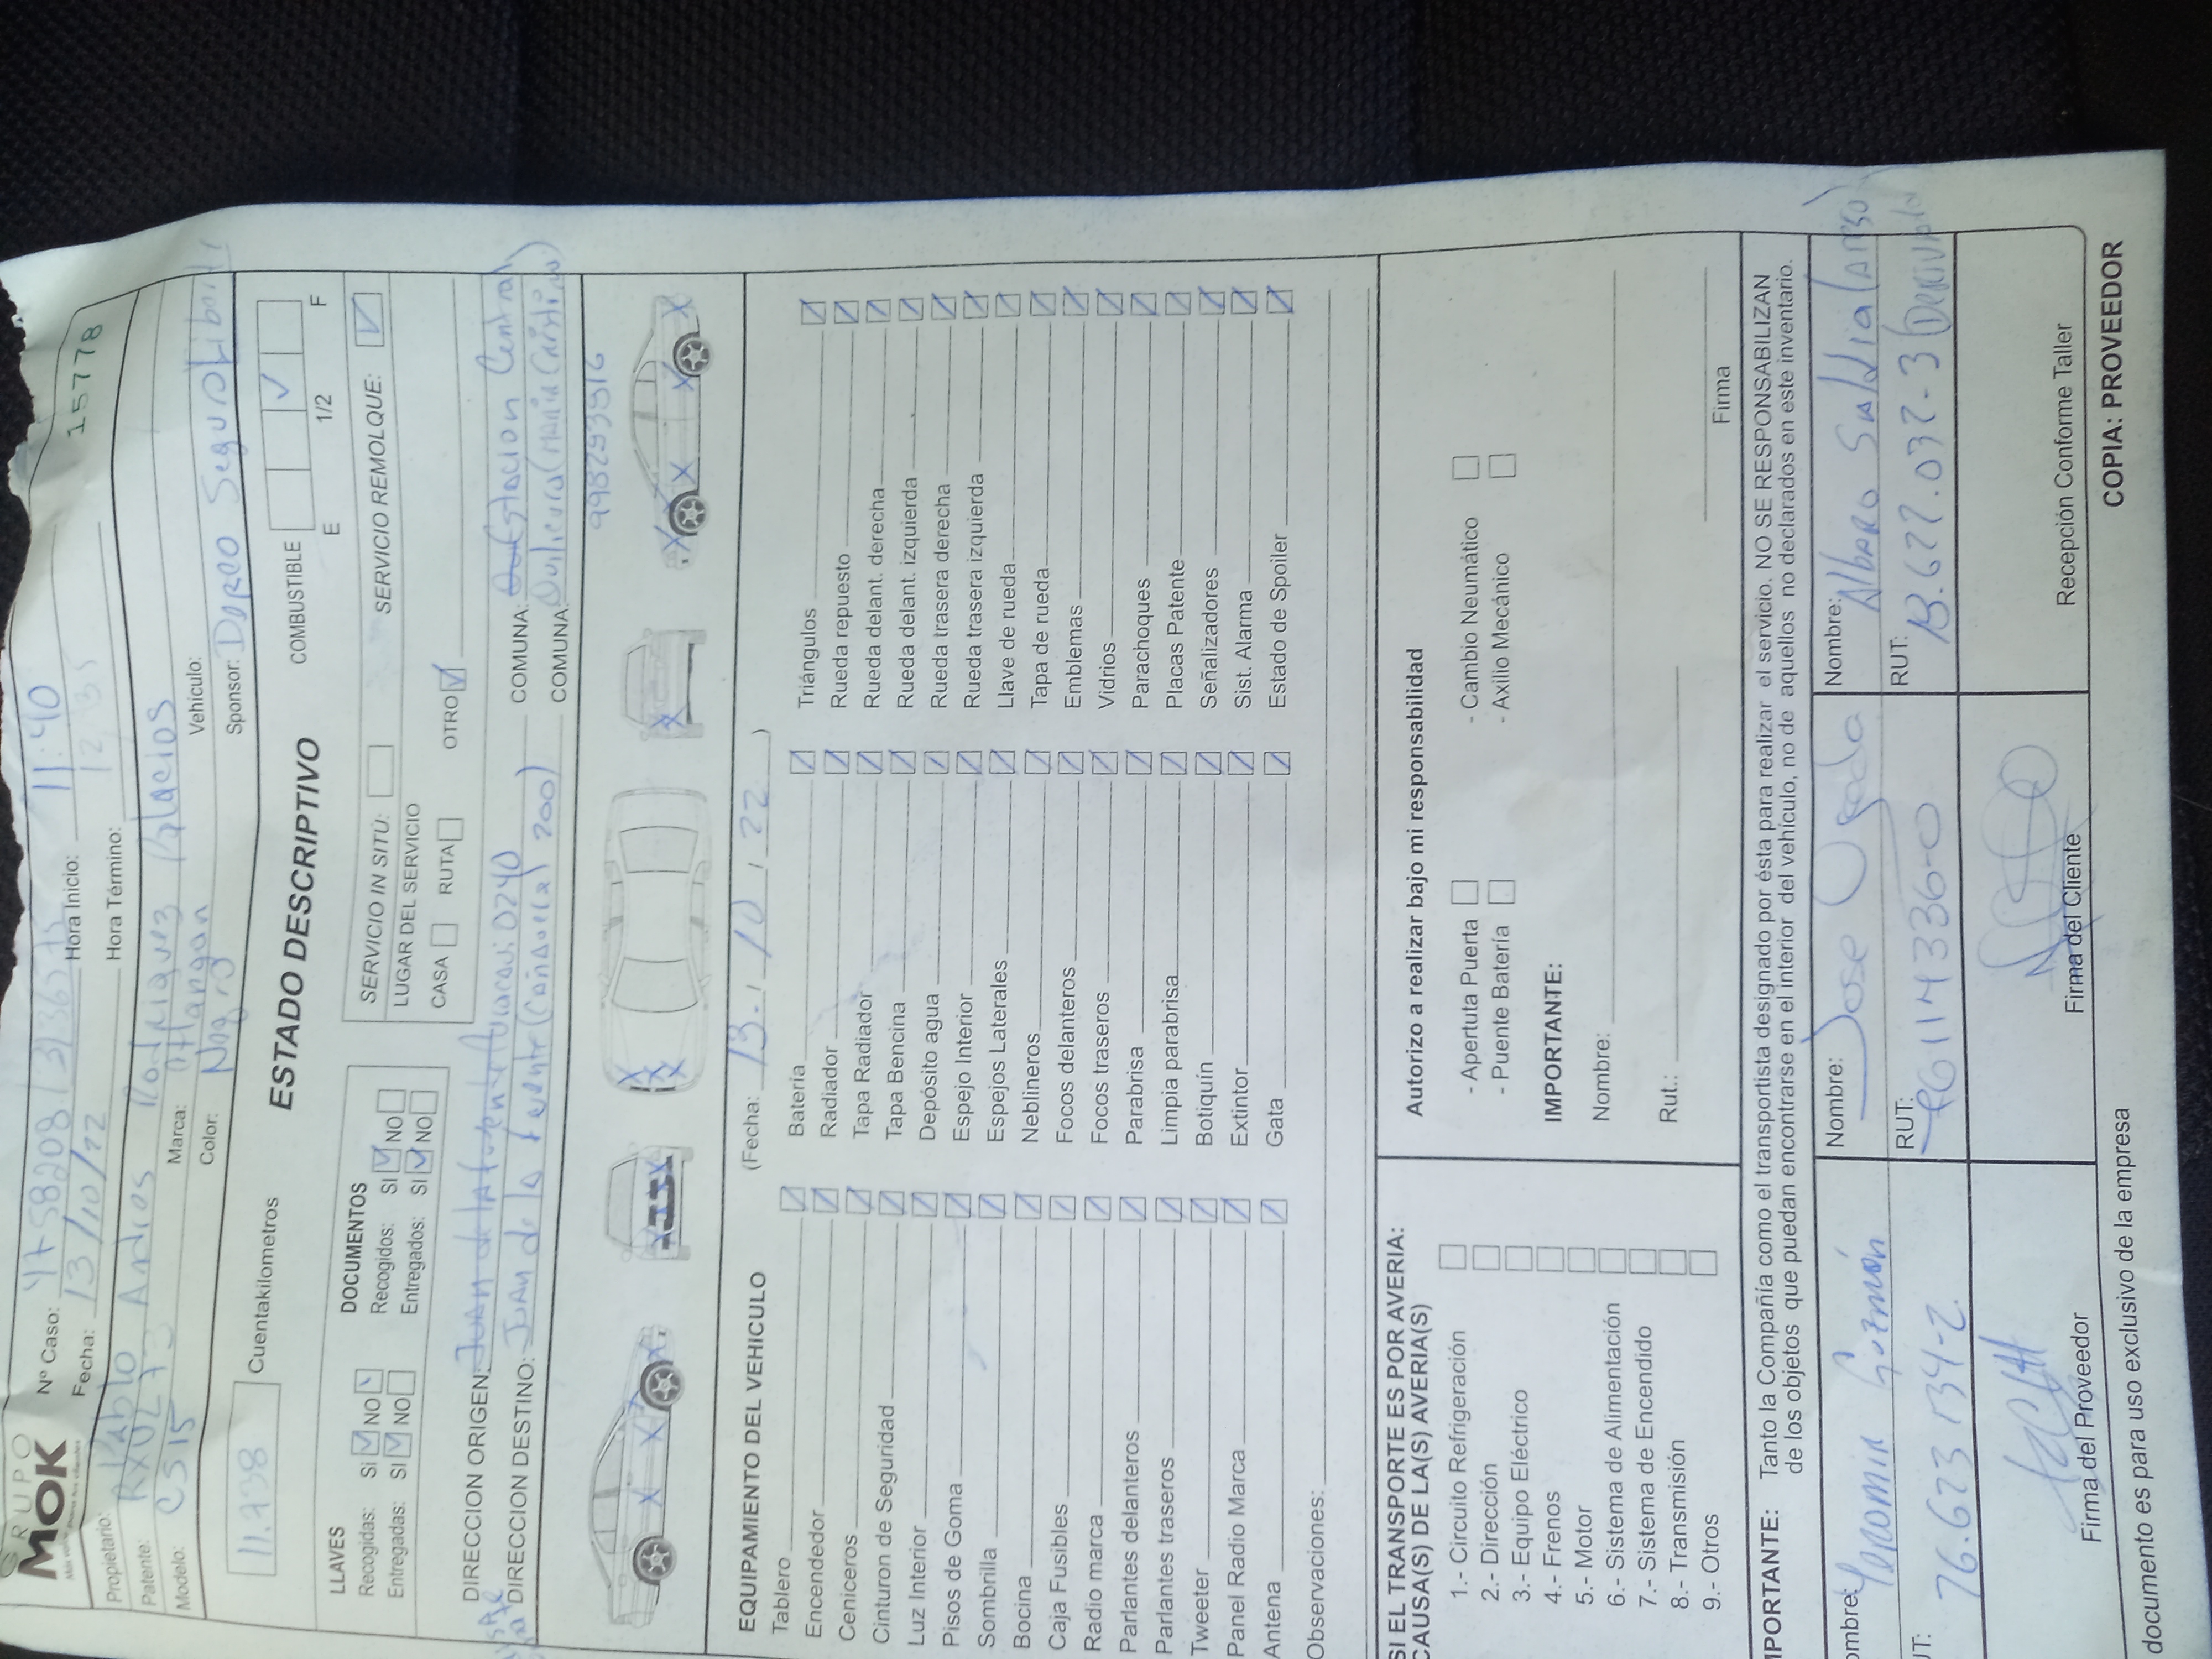 GRUPO
MOK
Nº Caso:
15778
Fecha: 13/10/22
Hora Inicio: 11:40
Hora Término:
Propietario: Pablo Andres Rodriguez Palacios
Patente:
Marca:
Vehículo:
Modelo: CS15
Color: Negro
Sponsor:
11.938 Cuentakilometros
ESTADO DESCRIPTIVO
COMBUSTIBLE
E 1/2 F
LLAVES
Recogidas: SI NO
Entregadas: SI NO
DOCUMENTOS
Recogidos: SI NO
Entregados: SI NO
SERVICIO IN SITU:
SERVICIO REMOLQUE:
LUGAR DEL SERVICIO
CASA RUTA OTRO
DIRECCION ORIGEN:
COMUNA: Estacion Central
DIRECCION DESTINO: Juan de la fuente
COMUNA:
998293916
EQUIPAMIENTO DEL VEHICULO (Fecha: 13 / 10 / 22 )
Tablero
Encendedor
Ceniceros
Cinturon de Seguridad
Luz Interior
Pisos de Goma
Sombrilla
Bocina
Caja Fusibles
Radio marca
Parlantes delanteros
Parlantes traseros
Tweeter
Panel Radio Marca
Antena
Batería
Radiador
Tapa Radiador
Tapa Bencina
Depósito agua
Espejo Interior
Espejos Laterales
Neblineros
Focos delanteros
Focos traseros
Parabrisa
Limpia parabrisa
Botiquín
Extintor
Gata
Triángulos
Rueda repuesto
Rueda delant. derecha
Rueda delant. izquierda
Rueda trasera derecha
Rueda trasera izquierda
Llave de rueda
Tapa de rueda
Emblemas
Vidrios
Parachoques
Placas Patente
Señalizadores
Sist. Alarma
Estado de Spoiler
Observaciones:
SI EL TRANSPORTE ES POR AVERIA:
CAUSA(S) DE LA(S) AVERIA(S)
1.- Circuito Refrigeración
2.- Dirección
3.- Equipo Eléctrico
4.- Frenos
5.- Motor
6.- Sistema de Alimentación
7.- Sistema de Encendido
8.- Transmisión
9.- Otros
Autorizo a realizar bajo mi responsabilidad
- Apertuta Puerta
- Cambio Neumático
- Puente Batería
- Axilio Mecánico
IMPORTANTE:
Nombre:
Rut.:
Firma
MPORTANTE: Tanto la Compañía como el transportista designado por ésta para realizar el servicio. NO SE RESPONSABILIZAN
de los objetos que puedan encontrarse en el interior del vehículo, no de aquellos no declarados en este inventario.
ombre: Yeromin Guzmán
UT: 76.623 134-2
Firma del Proveedor
Nombre: Jose
RUT:
Firma del Cliente
Nombre: Albaro Saldia
RUT: 18.627.032-3
Recepción Conforme Taller
documento es para uso exclusivo de la empresa
COPIA: PROVEEDOR